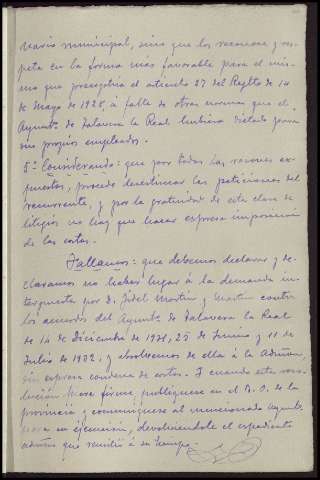 nario municipal, sino que los reconoce y res-
peta en la forma mas favorable para el mis-
mo que preceptua el artículo 27 del Reglto de 14
de Mayo de 1928, á falta de otras normas que el
Ayunto de Talavera la Real hubiera dictado para
sus propios empleados.
5º Considerando: que por todas las razones ex-
puestas, procede desestimar las peticiones del
recurrente, y por la gratuidad de esta clase de
litigios no hay que hacer expresa imposición
de las costas.
Fallamos: que debemos declarar y de-
claramos no haber lugar á la demanda in-
terpuesta por D. Fidel Martin y Martin contra
los acuerdos del Ayunto de Talavera la Real
de 14 de Diciembre de 1931, 25 de Junio y 11 de
Julio de 1932, y absolvemos de ella á la Admon,
sin expresa condena de costas. Y cuando esta reso-
lución fuere firme, publiquese en el B. O. de la
provincia y comuniquese al mencionado Ayunto
para su ejecución, devolviendole el expediente
que remitió á su tiempo.